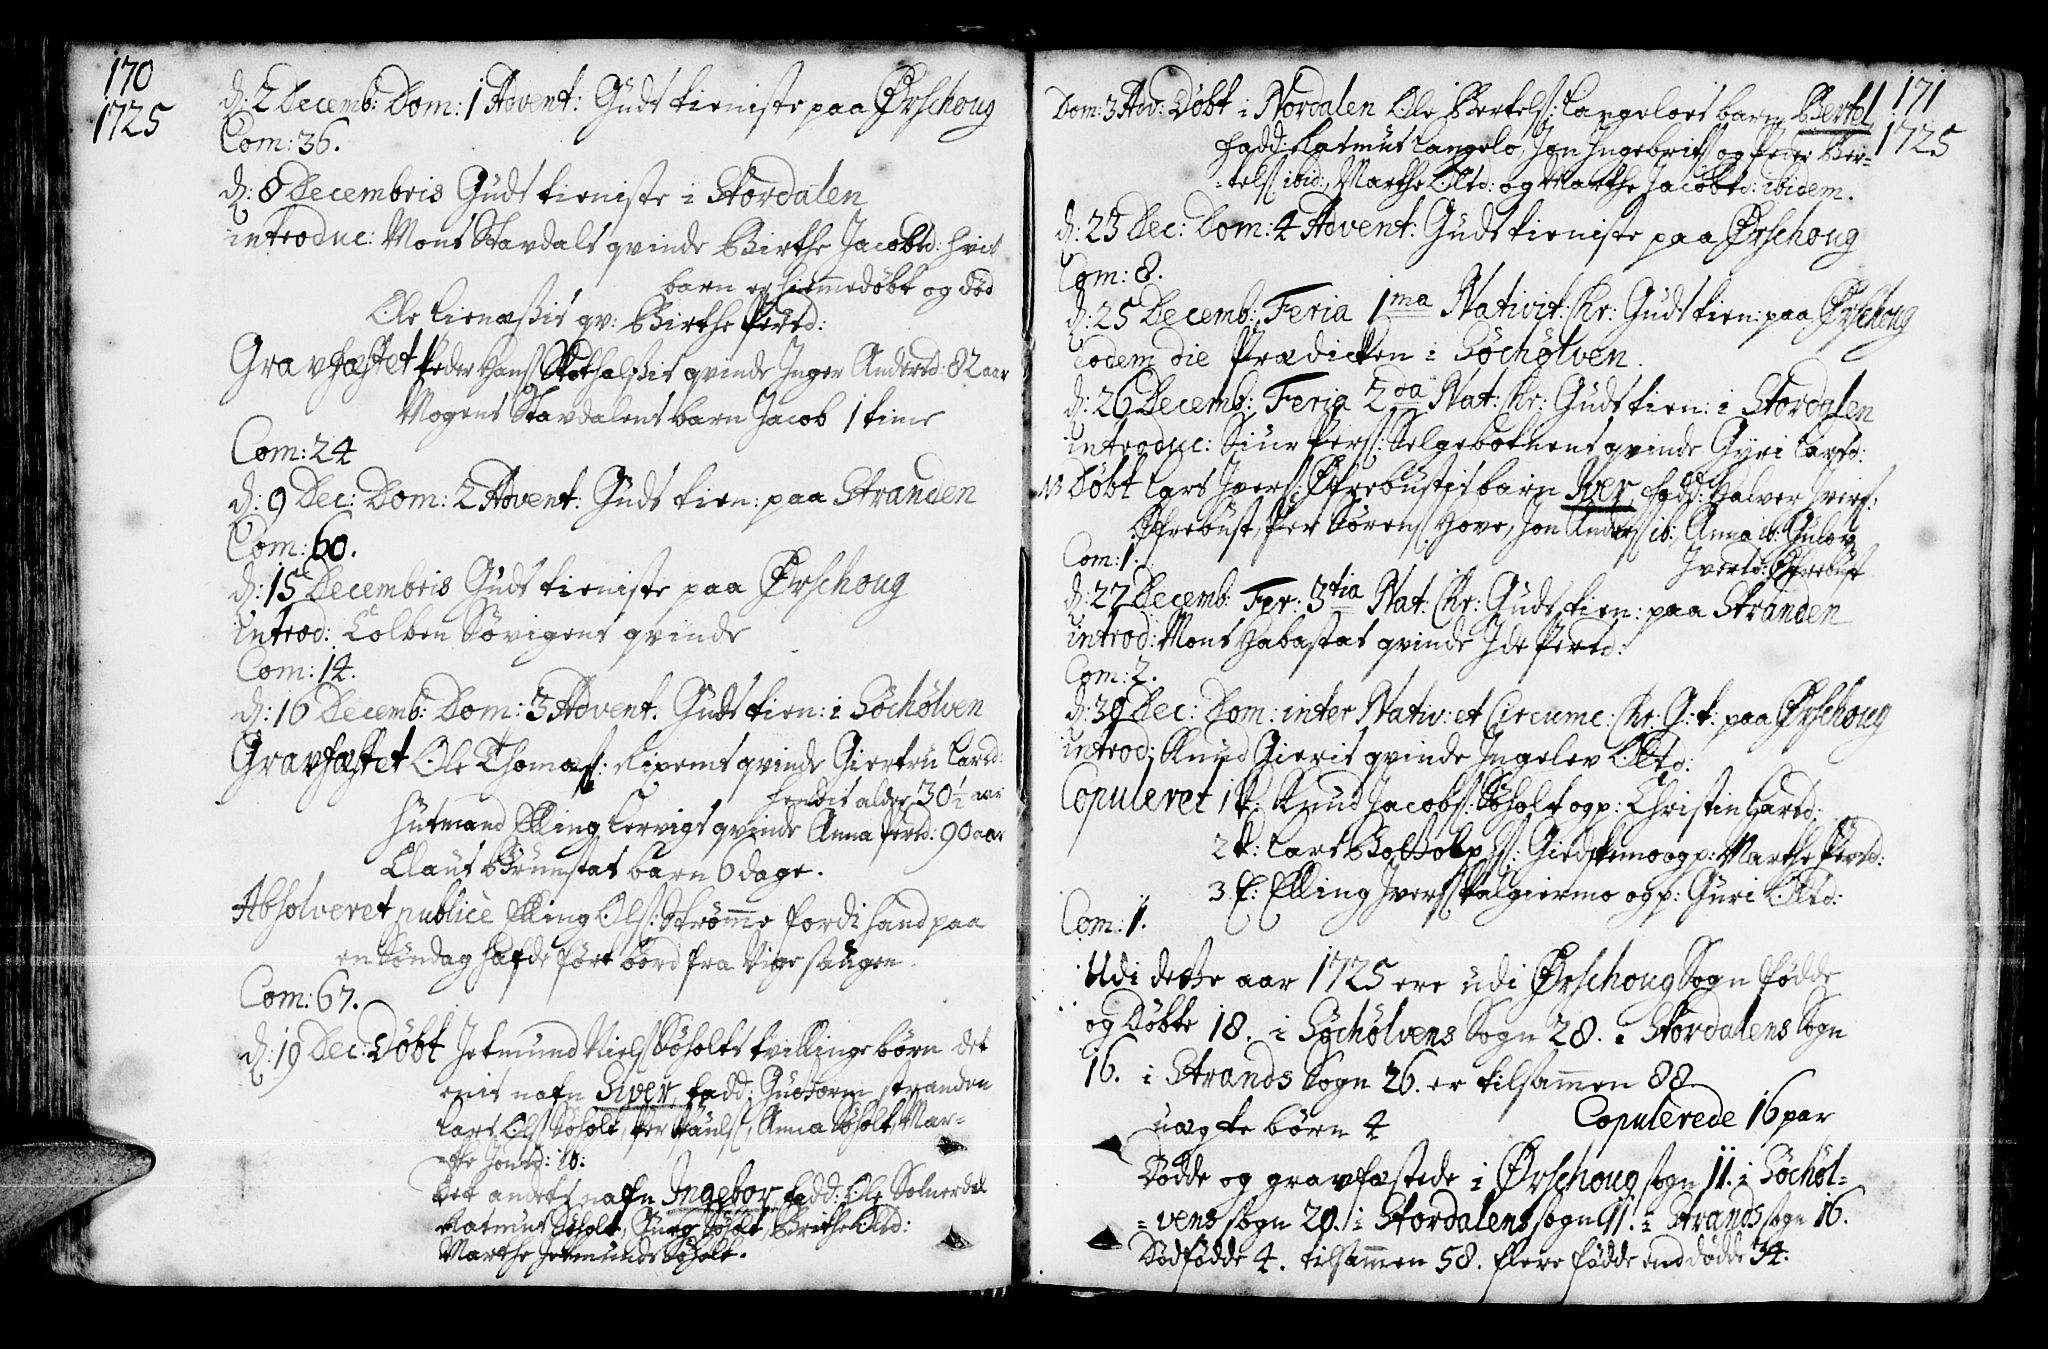 170
1725
d: 2 Decemb: Dom: 1 Advent: Guds tieniste paa Ørschoug
Com: 36.
d: 8 Decembris Guds tieniste i Stordalen
introduc: Mons Stavdals qvinde Birthe Jacobsd: hvis
barn er hiemmedøbt og død
Ole qv: Birthe Persd:
Gravfæstet Peder Hans qvinde Inger Andersd: 82 aar
Mogens Stavdalens barn Jacob 1 time
Com: 24
d: 9 Dec: Dom: 2 Advent: Guds tien: paa Stranden
Com: 60.
d: 15 Decembris Guds tieniste paa Ørschoug
introd: Colben Søvigens qvinde
Com: 14.
d: 16 Decemb: Dom: 3 Advent. Guds tien: i Søchølven
Gravfæstet Ole Thomæs: Ripems qvinde Giertru Larsd:
hendis alder 30½ aar
Husmand Elling Lervigs qvinde Anna Persd: 90 aar
Claus Brunstas barn 6 dage.
Absolveret publicè Elling Ols: Strømme fordi hand paa
en Søndag hafde ført bord fra Vigesaugen.
Com: 67.
d: 19 Dec: Døbt Jetmund Niels: Søholts tvillinge børn det
enis nafn Siver, fadd: Guthorm Stranden
Lars Ols: Søholt, Per Pauls:, Anna Søholt, Mar-
-the Jonsd: ib:
Det andets nafn Ingebor, fadd: Ole Solnerdal
Rasmus Søholt, Søholt, Birthe Olsd:
Marthe Jetmunds Søholt.
171
1725
Dom: 3 Adv: Døbt i Nordalen Ole Bertels: Langeloes barn Bertel
fadd: Rasmus Langelo, Jon Ingebrits: og Peder Ber-
-tels: ibid:, Marthe Olsd: og Marthe Jacobsd: ibidem.
d: 23 Dec: Dom: 4 Advent: Guds tieniste paa Ørschoug
Com: 8.
d: 25 Decemb: Feria 1ma Nativit: Chr: Guds tien: paa Ørschoug
eodem die Prædicken i Søchølven.
d: 26 Decemb: Feria 2da Nat: Chr: Guds tien: i Stordalen
introduc: Siur Pers: Selgebotnens qvinde Gyri Larsd:
NB Døbt Lars Ivers: Øfrebustis barn Iver, fadd: Halver Ivers:
Øfrebust, Per Sørens: Hove, Jon Anders: ib:, Anna ib: Gulov
Com: 1. Iversd: Øfrebust
d: 27 Decemb: Fer: 3tia Nat: Chr: Guds tien: paa Stranden
introd: Mons Habastas qvinde Ide Persd:
Com: 2.
d: 30 Dec: Dom: inter Nativ: et Circumc: Chr: G: t: paa Ørschoug
introd: Knud Gieris qvinde Ingelev Olsd:
Copuleret 1 P: Knud Jacobs: Søholt og p: Christin Larsd:
2 P: Lars og p: Marthe Persd:
3 P: Elling Ivers: og p: Guri Olsd:
Com: 1.
Udi dette aar 1725 ere udi Ørschoug Sogn fødde
og Døbte 18. i Søchølvens Sogn 28. i Stordalens Sogn
16. i Strands Sogn 26. er tilsammen 88
uægte børn 4 Copulerede 16 par
Dødde og gravfæstede i Ørschoug sogn 11. i Søchøl-
-vens sogn 20. i Stordalens sogn 11. i Strands sogn 16.
Dødfødde 4. tilsammen 58. flere fødde end dødde 34.